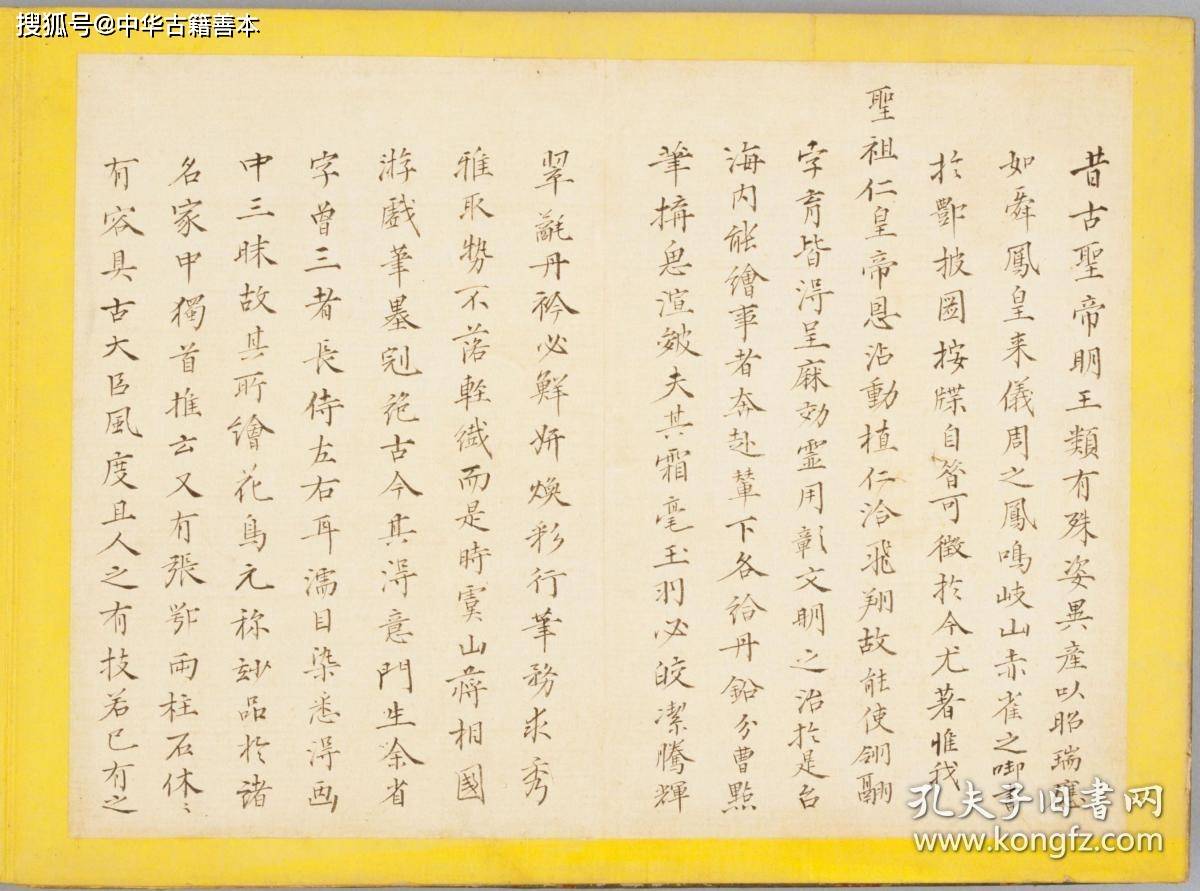 搜狐号@中华古籍善本
昔古聖帝明王類有殊姿異產以昭瑞應
如舜鳳皇来儀周之鳳鳴岐山赤雀之啣書
於酆披圖按牒自昝可徵於今尤著惟我
聖祖仁皇帝恩沾動植仁洽飛翔故能使翎翮
字育皆得呈麻効靈用彰文明之治於是台
海内能繪事者奔赴輦下各給丹鉛分曹點
筆搆思渲皴夫其霜毫玉羽必皎潔騰輝
翠毳丹衿必鮮妍煥彩行筆務求秀
雅取勢不落輕纎而是時虞山蔣相國
游戲筆墨剋絶古今其得意門生余省
字曾三者長侍左右耳濡目染悉得画
中三昧故其所繪花鳥元称玅品於諸
名家中獨首推云又有張鄂兩柱石休〻
有容具古大臣風度且人之有技若已有之
孔夫子旧书网
www.kongfz.com